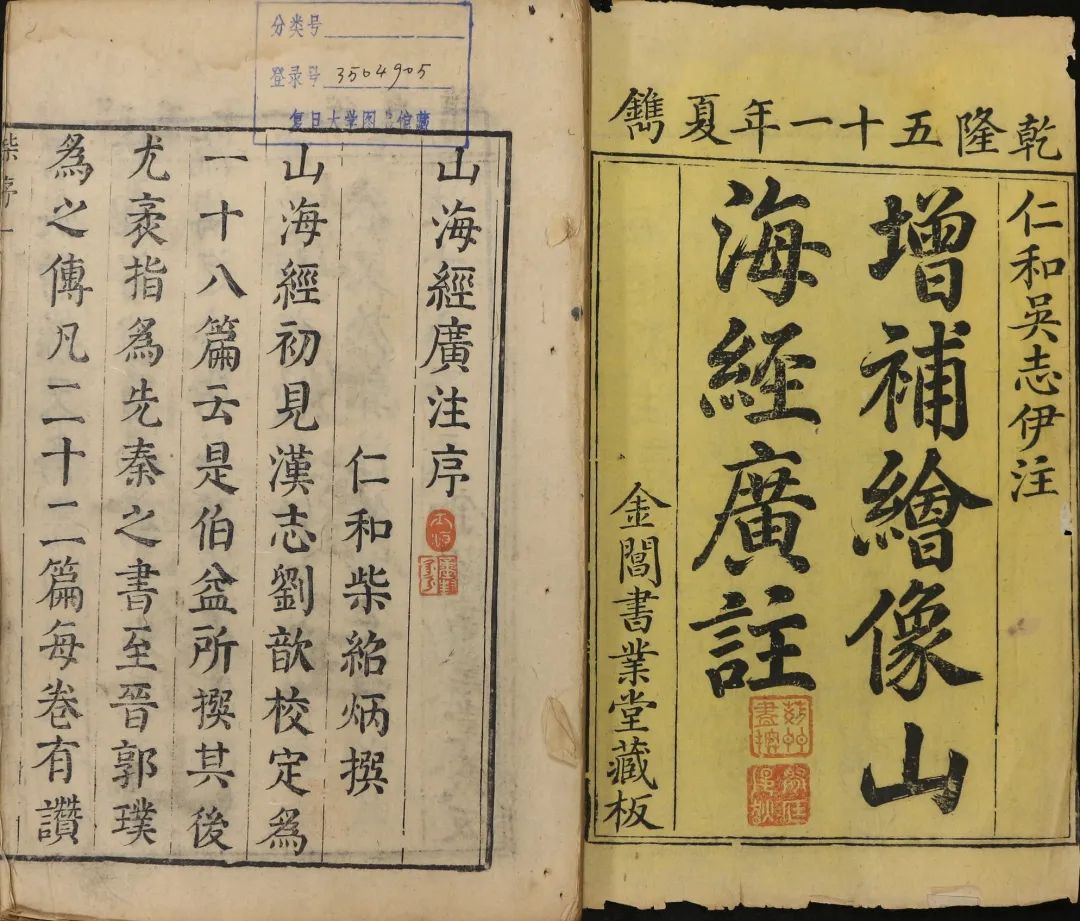 乾隆五十一年夏鐫
仁和吳志伊注
增補繪像山
海經廣註
金閶書業堂藏板
分类号
登录号 3504905
复旦大学图 馆藏
山海經廣注序
仁和柴紹炳撰
山海經初見漢志劉歆校定爲
一十八篇云是伯益所撰其後
尤袤指爲先秦之書至晉郭璞
爲之傳凡二十二篇每卷有讚
柴序 一